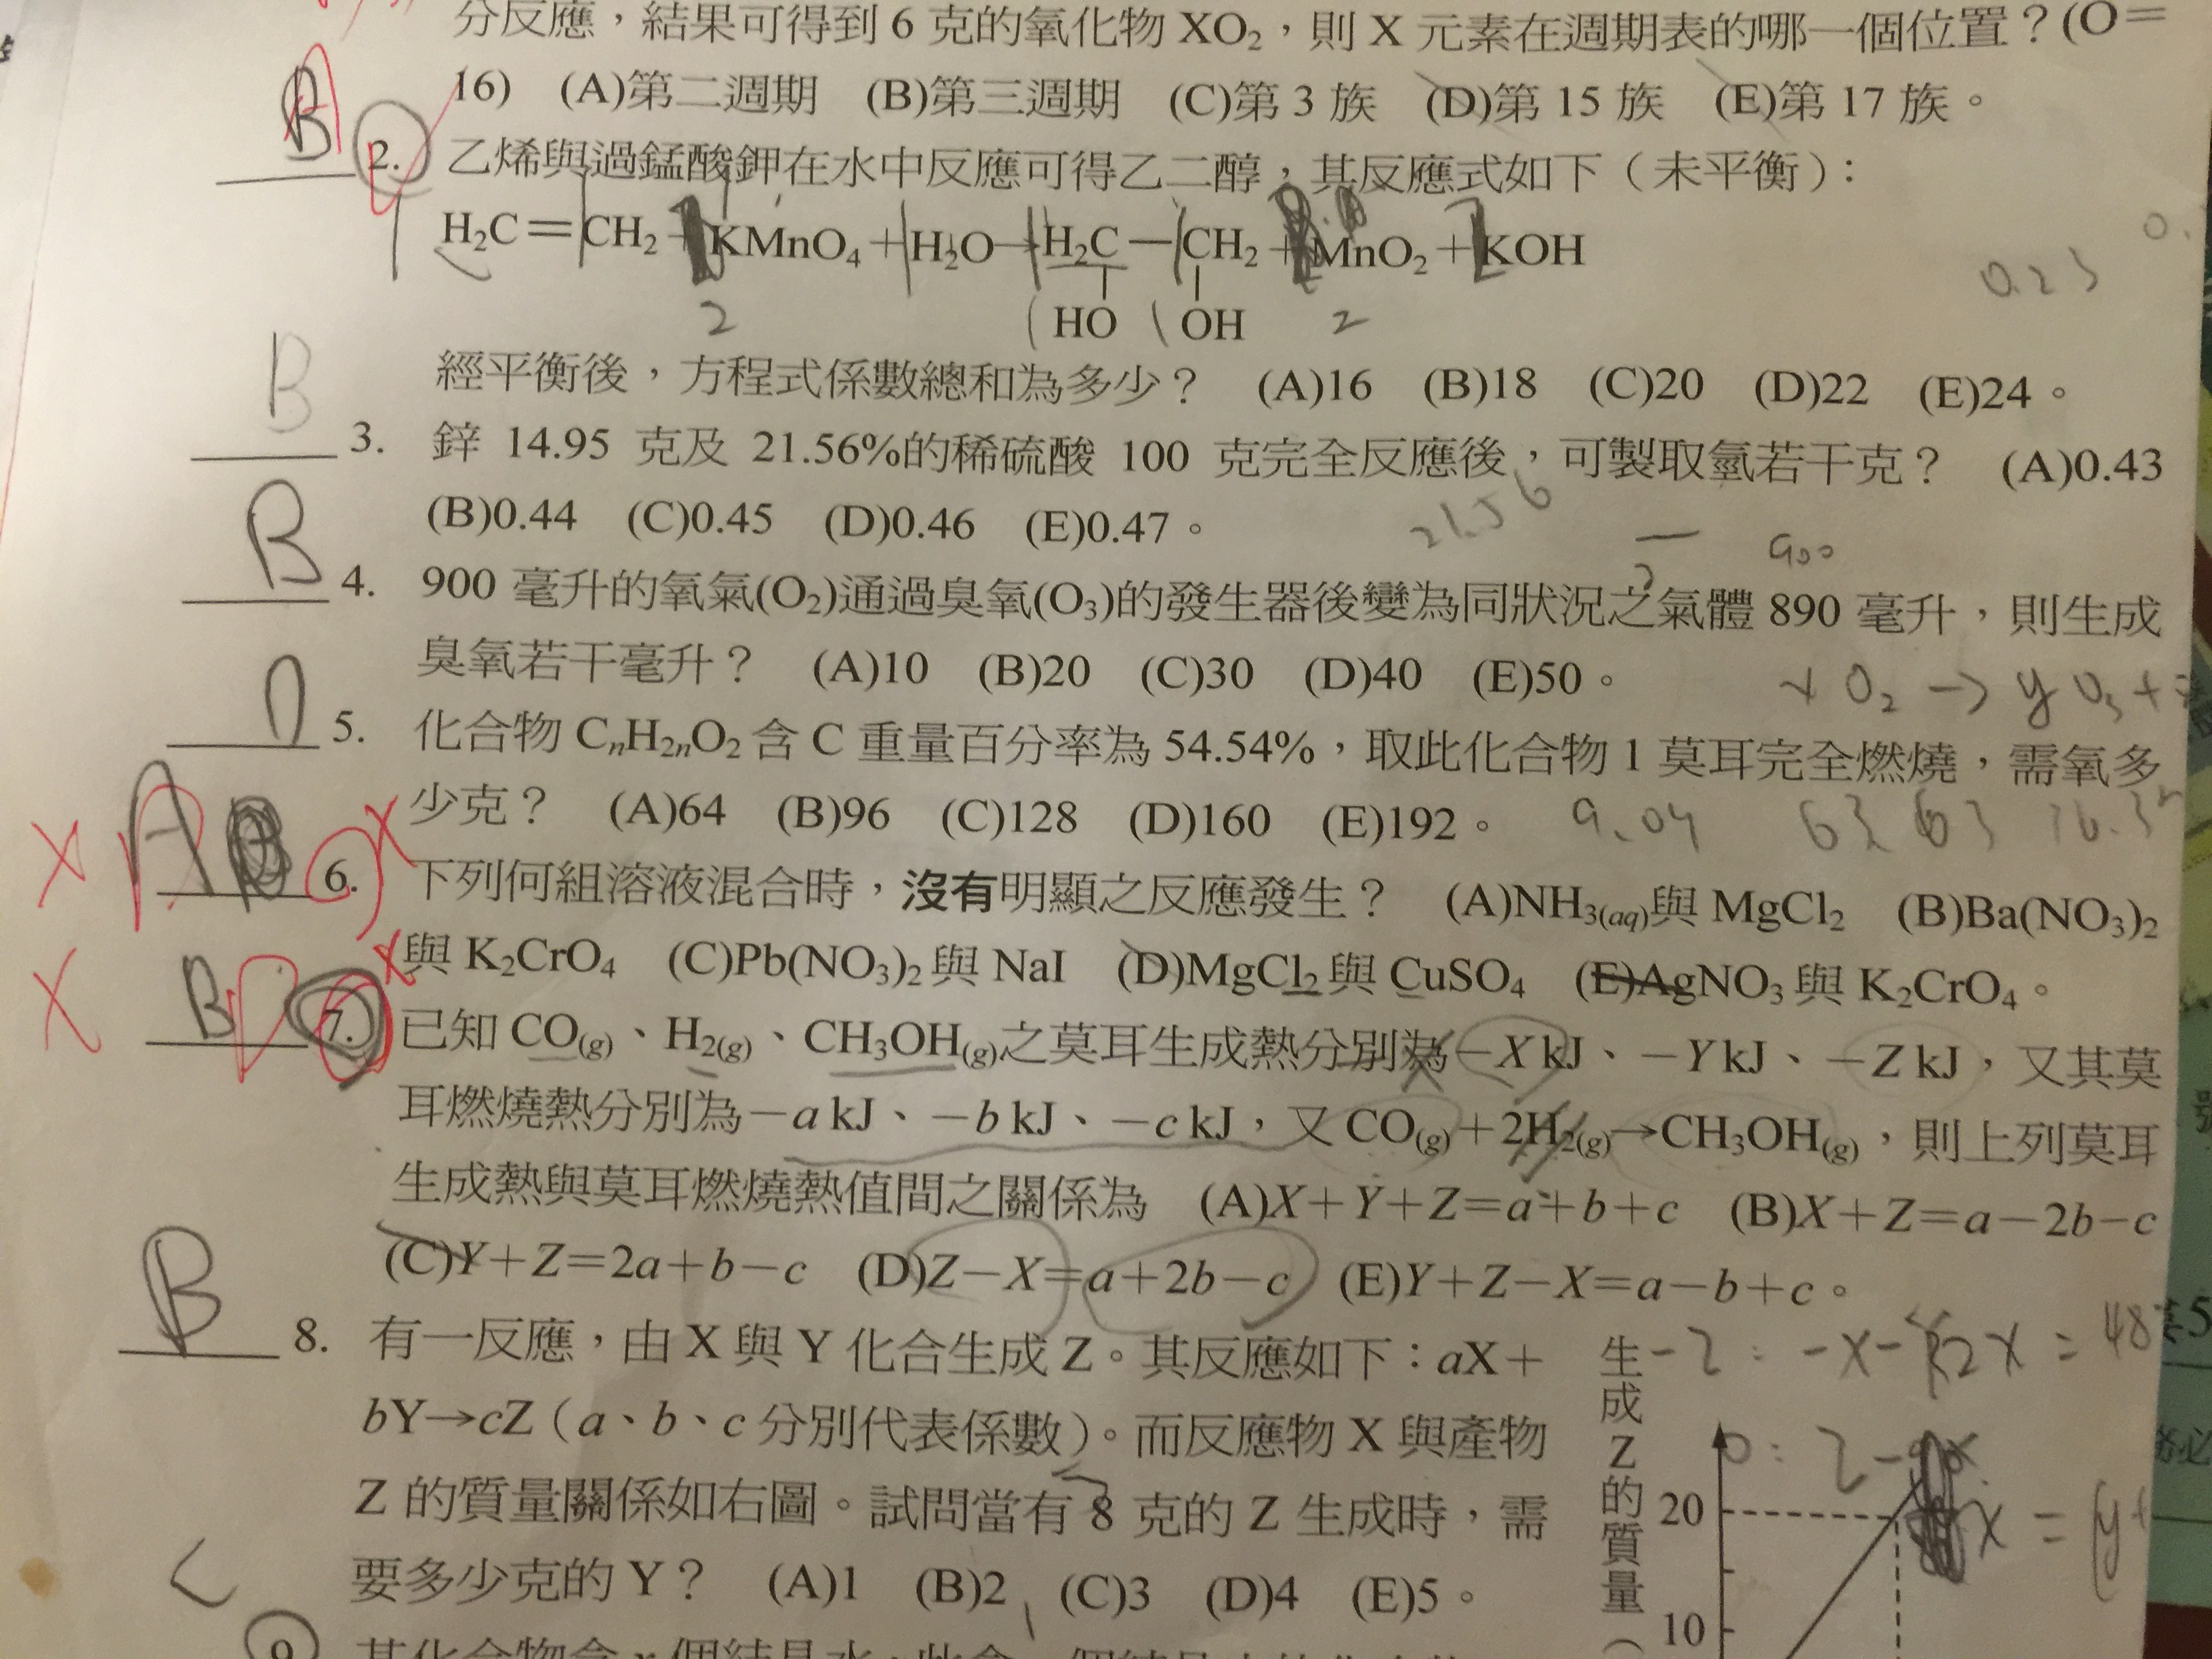 分反應，結果可得到 6 克的氧化物 XO₂，則 X 元素在週期表的哪一個位置？(O＝
16) (A)第二週期 (B)第三週期 (C)第 3 族 (D)第 15 族 (E)第 17 族。
B A 2. 乙烯與過錳酸鉀在水中反應可得乙二醇，其反應式如下（未平衡）：
H₂C＝CH₂＋KMnO₄＋H₂O→H₂C－CH₂＋MnO₂＋KOH
0.23
2 HO OH 2
經平衡後，方程式係數總和為多少？ (A)16 (B)18 (C)20 (D)22 (E)24。
B 3. 鋅 14.95 克及 21.56%的稀硫酸 100 克完全反應後，可製取氫若干克？ (A)0.43
(B)0.44 (C)0.45 (D)0.46 (E)0.47。
21.56
900
B 4. 900 毫升的氧氣(O₂)通過臭氧(O₃)的發生器後變為同狀況之氣體 890 毫升，則生成
臭氧若干毫升？ (A)10 (B)20 (C)30 (D)40 (E)50。
x O₂ → y O₃ +
D 5. 化合物 CₙH₂ₙO₂ 含 C 重量百分率為 54.54%，取此化合物 1 莫耳完全燃燒，需氧多
少克？ (A)64 (B)96 (C)128 (D)160 (E)192。
9.04 63 63
A D 6. 下列何組溶液混合時，沒有明顯之反應發生？ (A)NH₃(aq)與 MgCl₂ (B)Ba(NO₃)₂
與 K₂CrO₄ (C)Pb(NO₃)₂ 與 NaI (D)MgCl₂ 與 CuSO₄ (E)AgNO₃ 與 K₂CrO₄。
B D 7. 已知 CO(g)、H₂(g)、CH₃OH(g)之莫耳生成熱分別為－X kJ、－Y kJ、－Z kJ，又其莫
耳燃燒熱分別為－a kJ、－b kJ、－c kJ，又 CO(g)＋2H₂(g)→CH₃OH(g)，則上列莫耳
生成熱與莫耳燃燒熱值間之關係為 (A)X＋Y＋Z＝a＋b＋c (B)X＋Z＝a－2b－c
(C)Y＋Z＝2a＋b－c (D)Z－X＝a＋2b－c (E)Y＋Z－X＝a－b＋c。
B 8. 有一反應，由 X 與 Y 化合生成 Z。其反應如下：aX＋
bY→cZ（a、b、c 分別代表係數）。而反應物 X 與產物
Z 的質量關係如右圖。試問當有 8 克的 Z 生成時，需
要多少克的 Y？ (A)1 (B)2 (C)3 (D)4 (E)5。
生成 Z 的質量（
20
10
C
9. 某化合物含 x 個結晶水，此含